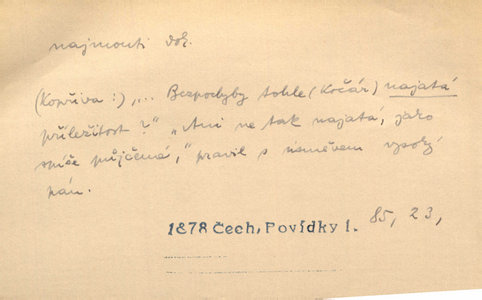 najmouti dok.
(Kopřiva:) „... Bezpochyby tohle (kočár) najatá
příležitost?" „Ani ne tak najatá, jako
spíše půjčená," pravil s úsměvem vysoký
pán.
1878 Čech, Povídky I. 85, 23,